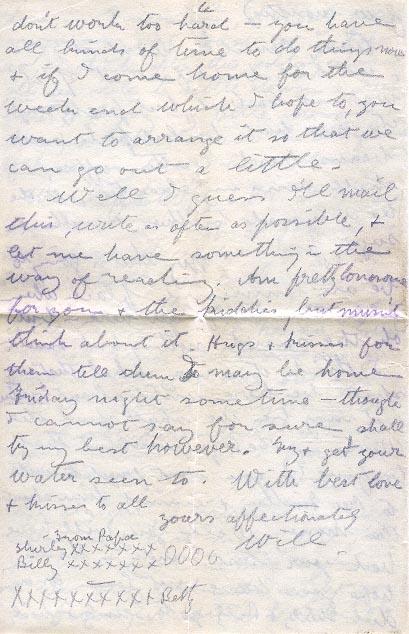 don't work too hard – you have
all kinds of time to do things now
& if I come home for the
week end which I hope to, you
want to arrange it so that we
can go out a little.
Well I guess I'll mail
this, write as often as possible, &
let me have something in the
way of reading. Am pretty lonesome
for you & the kiddies but mustn't
think about it. Hugs & kisses for
them tell them I may be home
Friday night sometime – though
I cannot say for sure shall
try my best however. Try & get your
water seen to. With best love
& kisses to all
yours affectionately
Will
From Papa
Shirley xxxxxxx
Billy xxxxxxx OOOO
xxxxxxxxx Betty